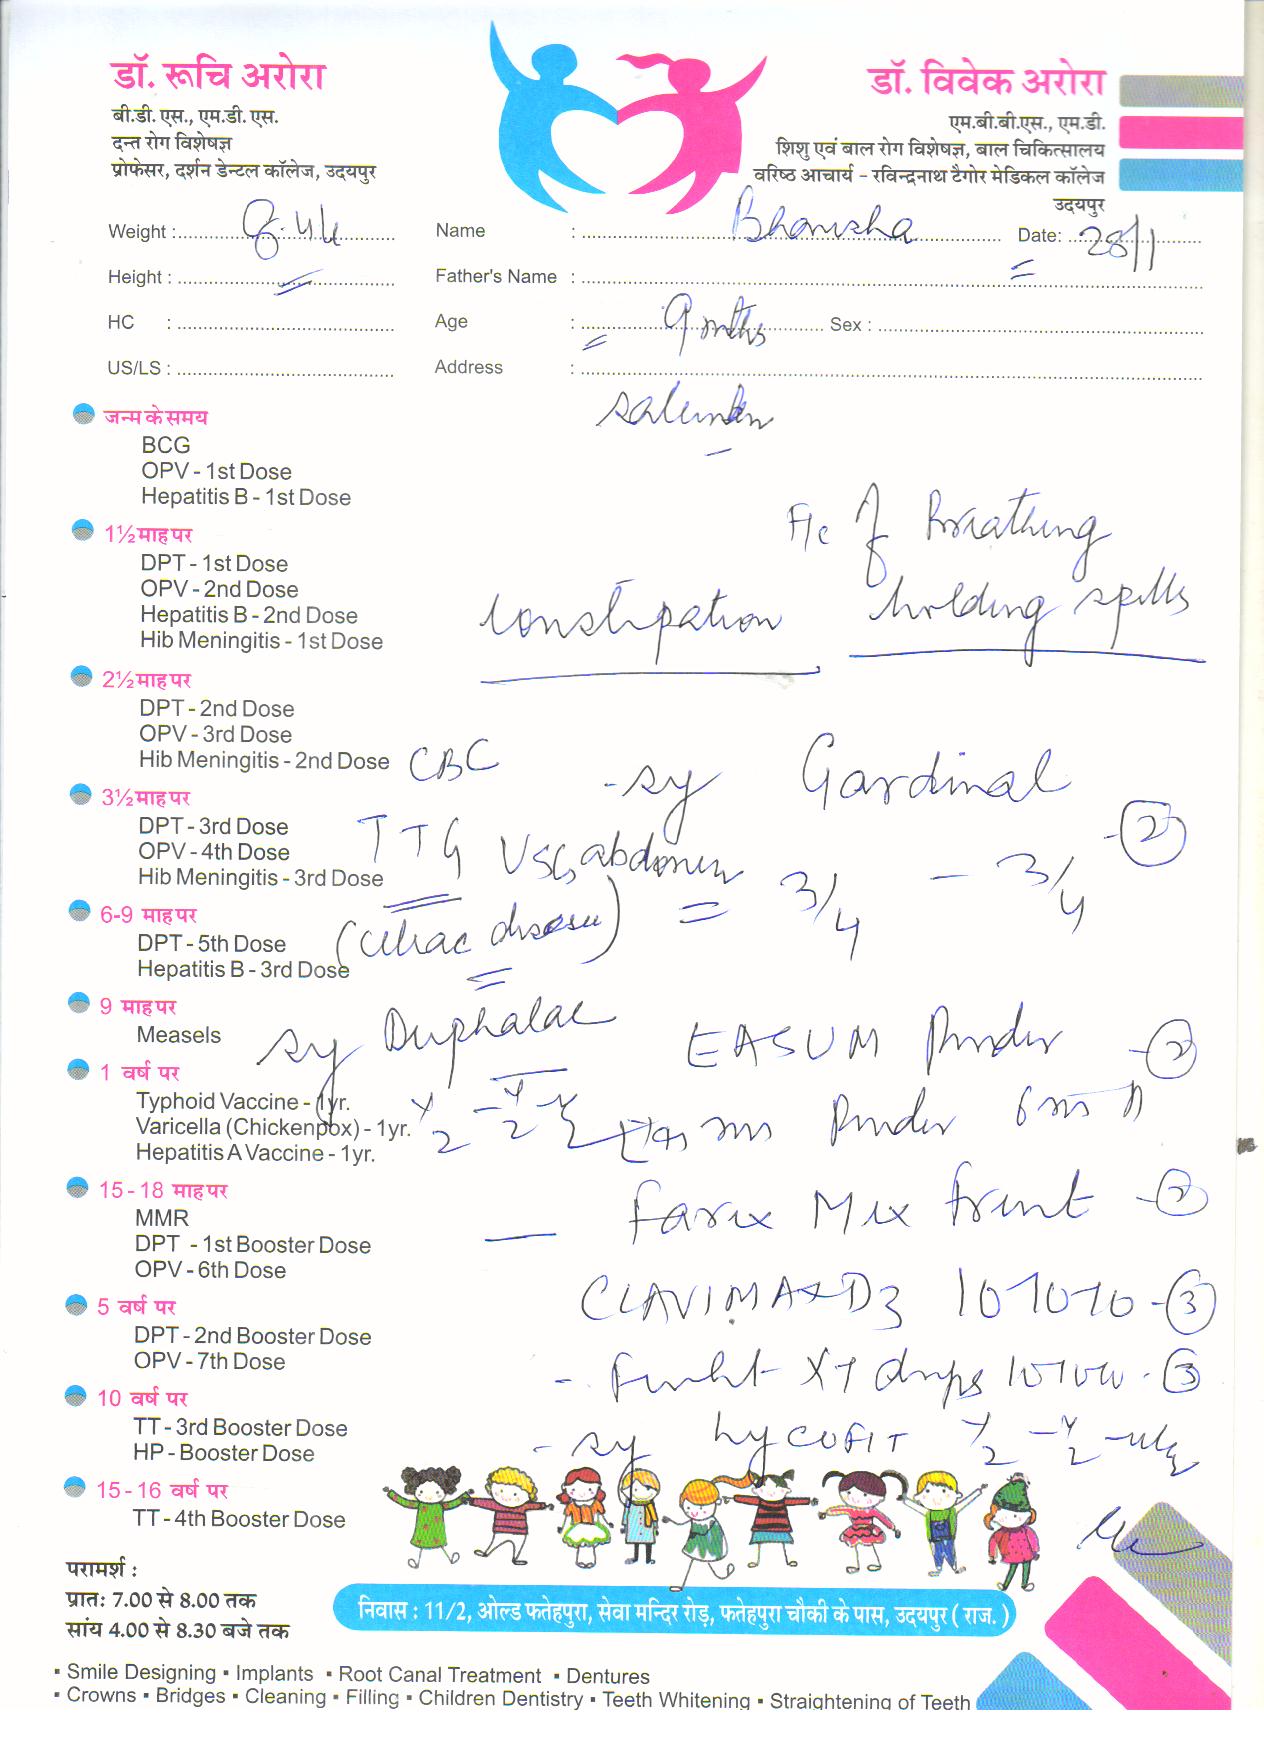 डॉ. रूचि अरोरा
बी.डी. एस., एम.डी. एस.
दन्त रोग विशेषज्ञ
प्रोफेसर, दर्शन डेन्टल कॉलेज, उदयपुर
डॉ. विवेक अरोरा
एम.बी.बी.एस., एम.डी.
शिशु एवं बाल रोग विशेषज्ञ, बाल चिकित्सालय
वरिष्ठ आचार्य - रविन्द्रनाथ टैगोर मेडिकल कॉलेज
उदयपुर
Weight : Name : Date: 28/1
Height : Father's Name :
HC : Age : 9 mths Sex :
US/LS : Address :
जन्म के समय
BCG
OPV - 1st Dose
Hepatitis B - 1st Dose
1½ माह पर
DPT - 1st Dose
OPV - 2nd Dose
Hepatitis B - 2nd Dose
Hib Meningitis - 1st Dose
2½ माह पर
DPT - 2nd Dose
OPV - 3rd Dose
Hib Meningitis - 2nd Dose
3½ माह पर
DPT - 3rd Dose
OPV - 4th Dose
Hib Meningitis - 3rd Dose
6-9 माह पर
DPT - 5th Dose
Hepatitis B - 3rd Dose
9 माह पर
Measels
1 वर्ष पर
Typhoid Vaccine - 1yr.
Varicella (Chickenpox) - 1yr.
Hepatitis A Vaccine - 1yr.
15-18 माह पर
MMR
DPT - 1st Booster Dose
OPV - 6th Dose
5 वर्ष पर
DPT - 2nd Booster Dose
OPV - 7th Dose
10 वर्ष पर
TT - 3rd Booster Dose
HP - Booster Dose
15-16 वर्ष पर
TT - 4th Booster Dose
of Breathing
holding spells
constipation
CBC
TTG USG abdomen
(celiac disease)
- sy Gardinal
3/4 - 3/4 - 2
sy Duphalac
½ - ½ - ½
EASUM Powder - 2
Powder
Farex Mix Fruit - 2
CLAVIMAX D3 - 3
XT drops - 3
- sy hycofit ½ - ½
परामर्श :
प्रातः 7.00 से 8.00 तक
सांय 4.00 से 8.30 बजे तक
निवास : 11/2, ओल्ड फतेहपुरा, सेवा मन्दिर रोड़, फतेहपुरा चौकी के पास, उदयपुर ( राज. )
▪ Smile Designing ▪ Implants ▪ Root Canal Treatment ▪ Dentures
▪ Crowns ▪ Bridges ▪ Cleaning ▪ Filling ▪ Children Dentistry ▪ Teeth Whitening ▪ Straightening of Teeth